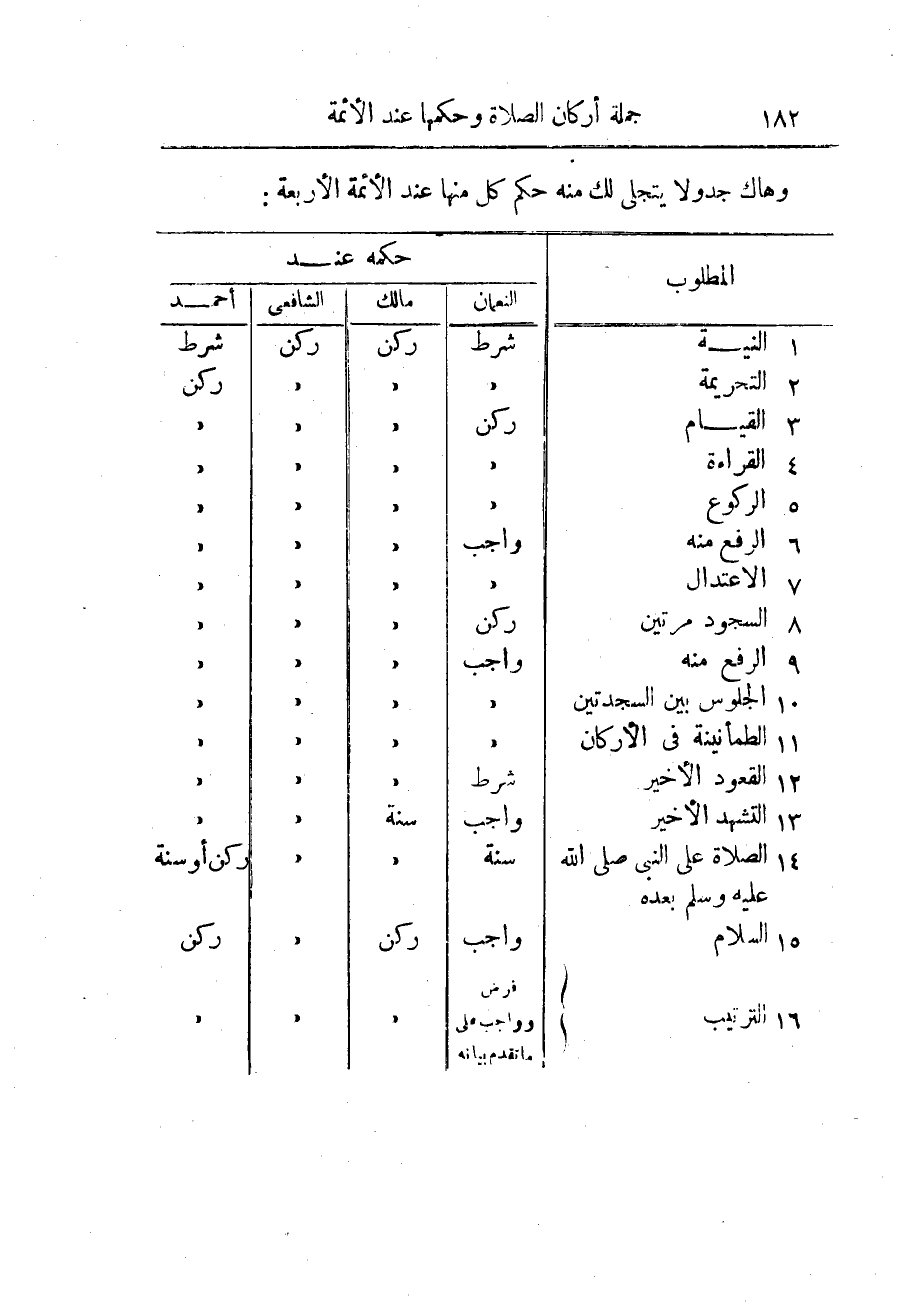 ١٨٢ جملة أركان الصلاة وحكمها عند الأئمة
وهاك جدولا يتجلى لك منه حكم كل منها عند الأئمة الأربعة :
المطلوب حكمه عنـــد
النعمان مالك الشافعى أحمـــد
١ النيـــة شرط ركن ركن شرط
٢ التحريمة » » » ركن
٣ القيـــام ركن » » »
٤ القراءة » » » »
٥ الركوع » » » »
٦ الرفع منه واجب » » »
٧ الاعتدال » » » »
٨ السجود مرتين ركن » » »
٩ الرفع منه واجب » » »
١٠ الجلوس بين السجدتين » » » »
١١ الطمأنينة فى الأركان » » » »
١٢ القعود الأخير شرط » » »
١٣ التشهد الأخير واجب سنة » »
١٤ الصلاة على النبى صلى الله سنة » » ركن أو سنة
عليه وسلم بعده
١٥ السلام واجب ركن » ركن
فرض
١٦ الترتيب وواجب على » » »
ماتقدم بيانه